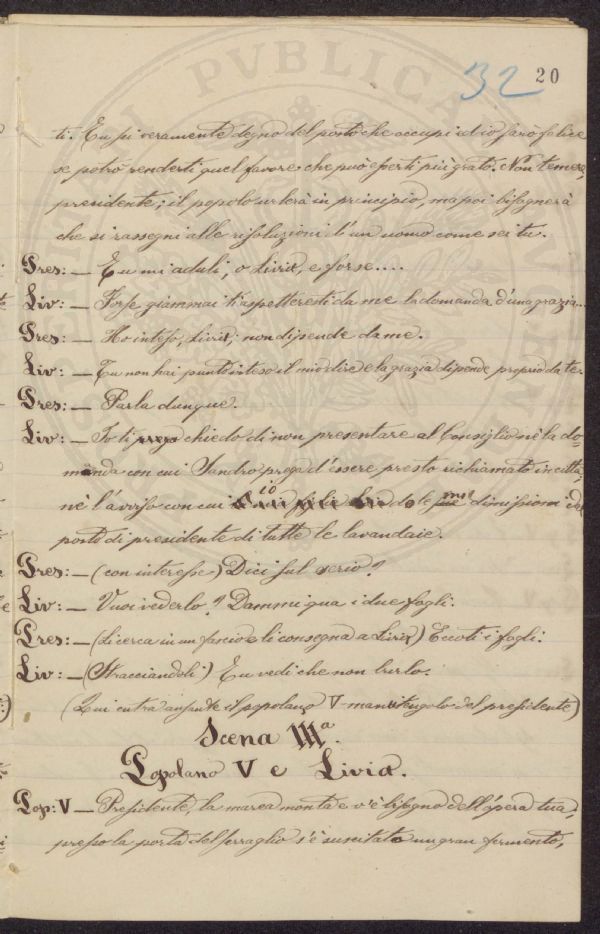 32 20
ti. Tu sei veramente degno del posto che occupi ed io sarò felice
se potrò renderti quel favore che può esserti più grato. Non temere,
presidente; il popolo urlerà in principio, ma poi bisognerà
che si rassegni alle risoluzioni d'un uomo come sei tu.
Pres: — Tu mi aduli, o Livia, e forse....
Liv: — Forse giammai ti aspetteresti da me la domanda d'una grazia...
Pres: — Ho inteso, Livia; non dipende da me.
Liv: — Tu non hai punto inteso il mio dire e la grazia dipende proprio da te.
Pres: — Parla dunque.
Liv: — Io ti prego chiedo di non presentare al Consiglio nè la do=
manda con cui Sandro prega d'essere presto richiamato in città,
nè l'avviso con cui io do le mie dimissioni dal
posto di presidente di tutte le lavandaie.
Pres: — (con interesse) Dici sul serio?
Liv: — Vuoi vederlo? Dammi qua i due fogli.
Pres: — (Li cerca in un fascio e li consegna a Livia) Eccoti i fogli.
Liv: — (Stracciandoli) Tu vedi che non burlo.
(Qui entra ansante il popolano V- manutengolo del presidente)
Scena IIIa.
Popolano V e Livia.
Pop: V — Presidente, la marea monta e v'è bisogno dell'opera tua,
presso la porta del serraglio s'è suscitato un gran fermento,
PVBLICA